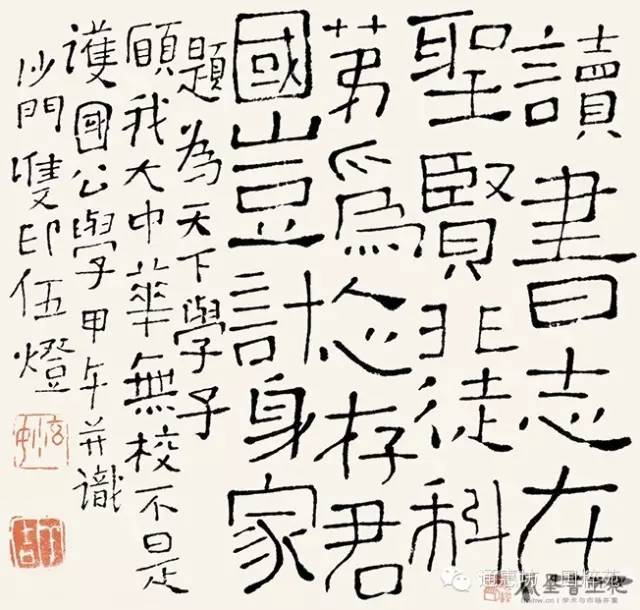 讀書志在
聖賢非徒科
第為心存君
國豈計身家
題為天下學子
願我大中華無校不是
護國公學甲午并識
沙門雙印伍燈